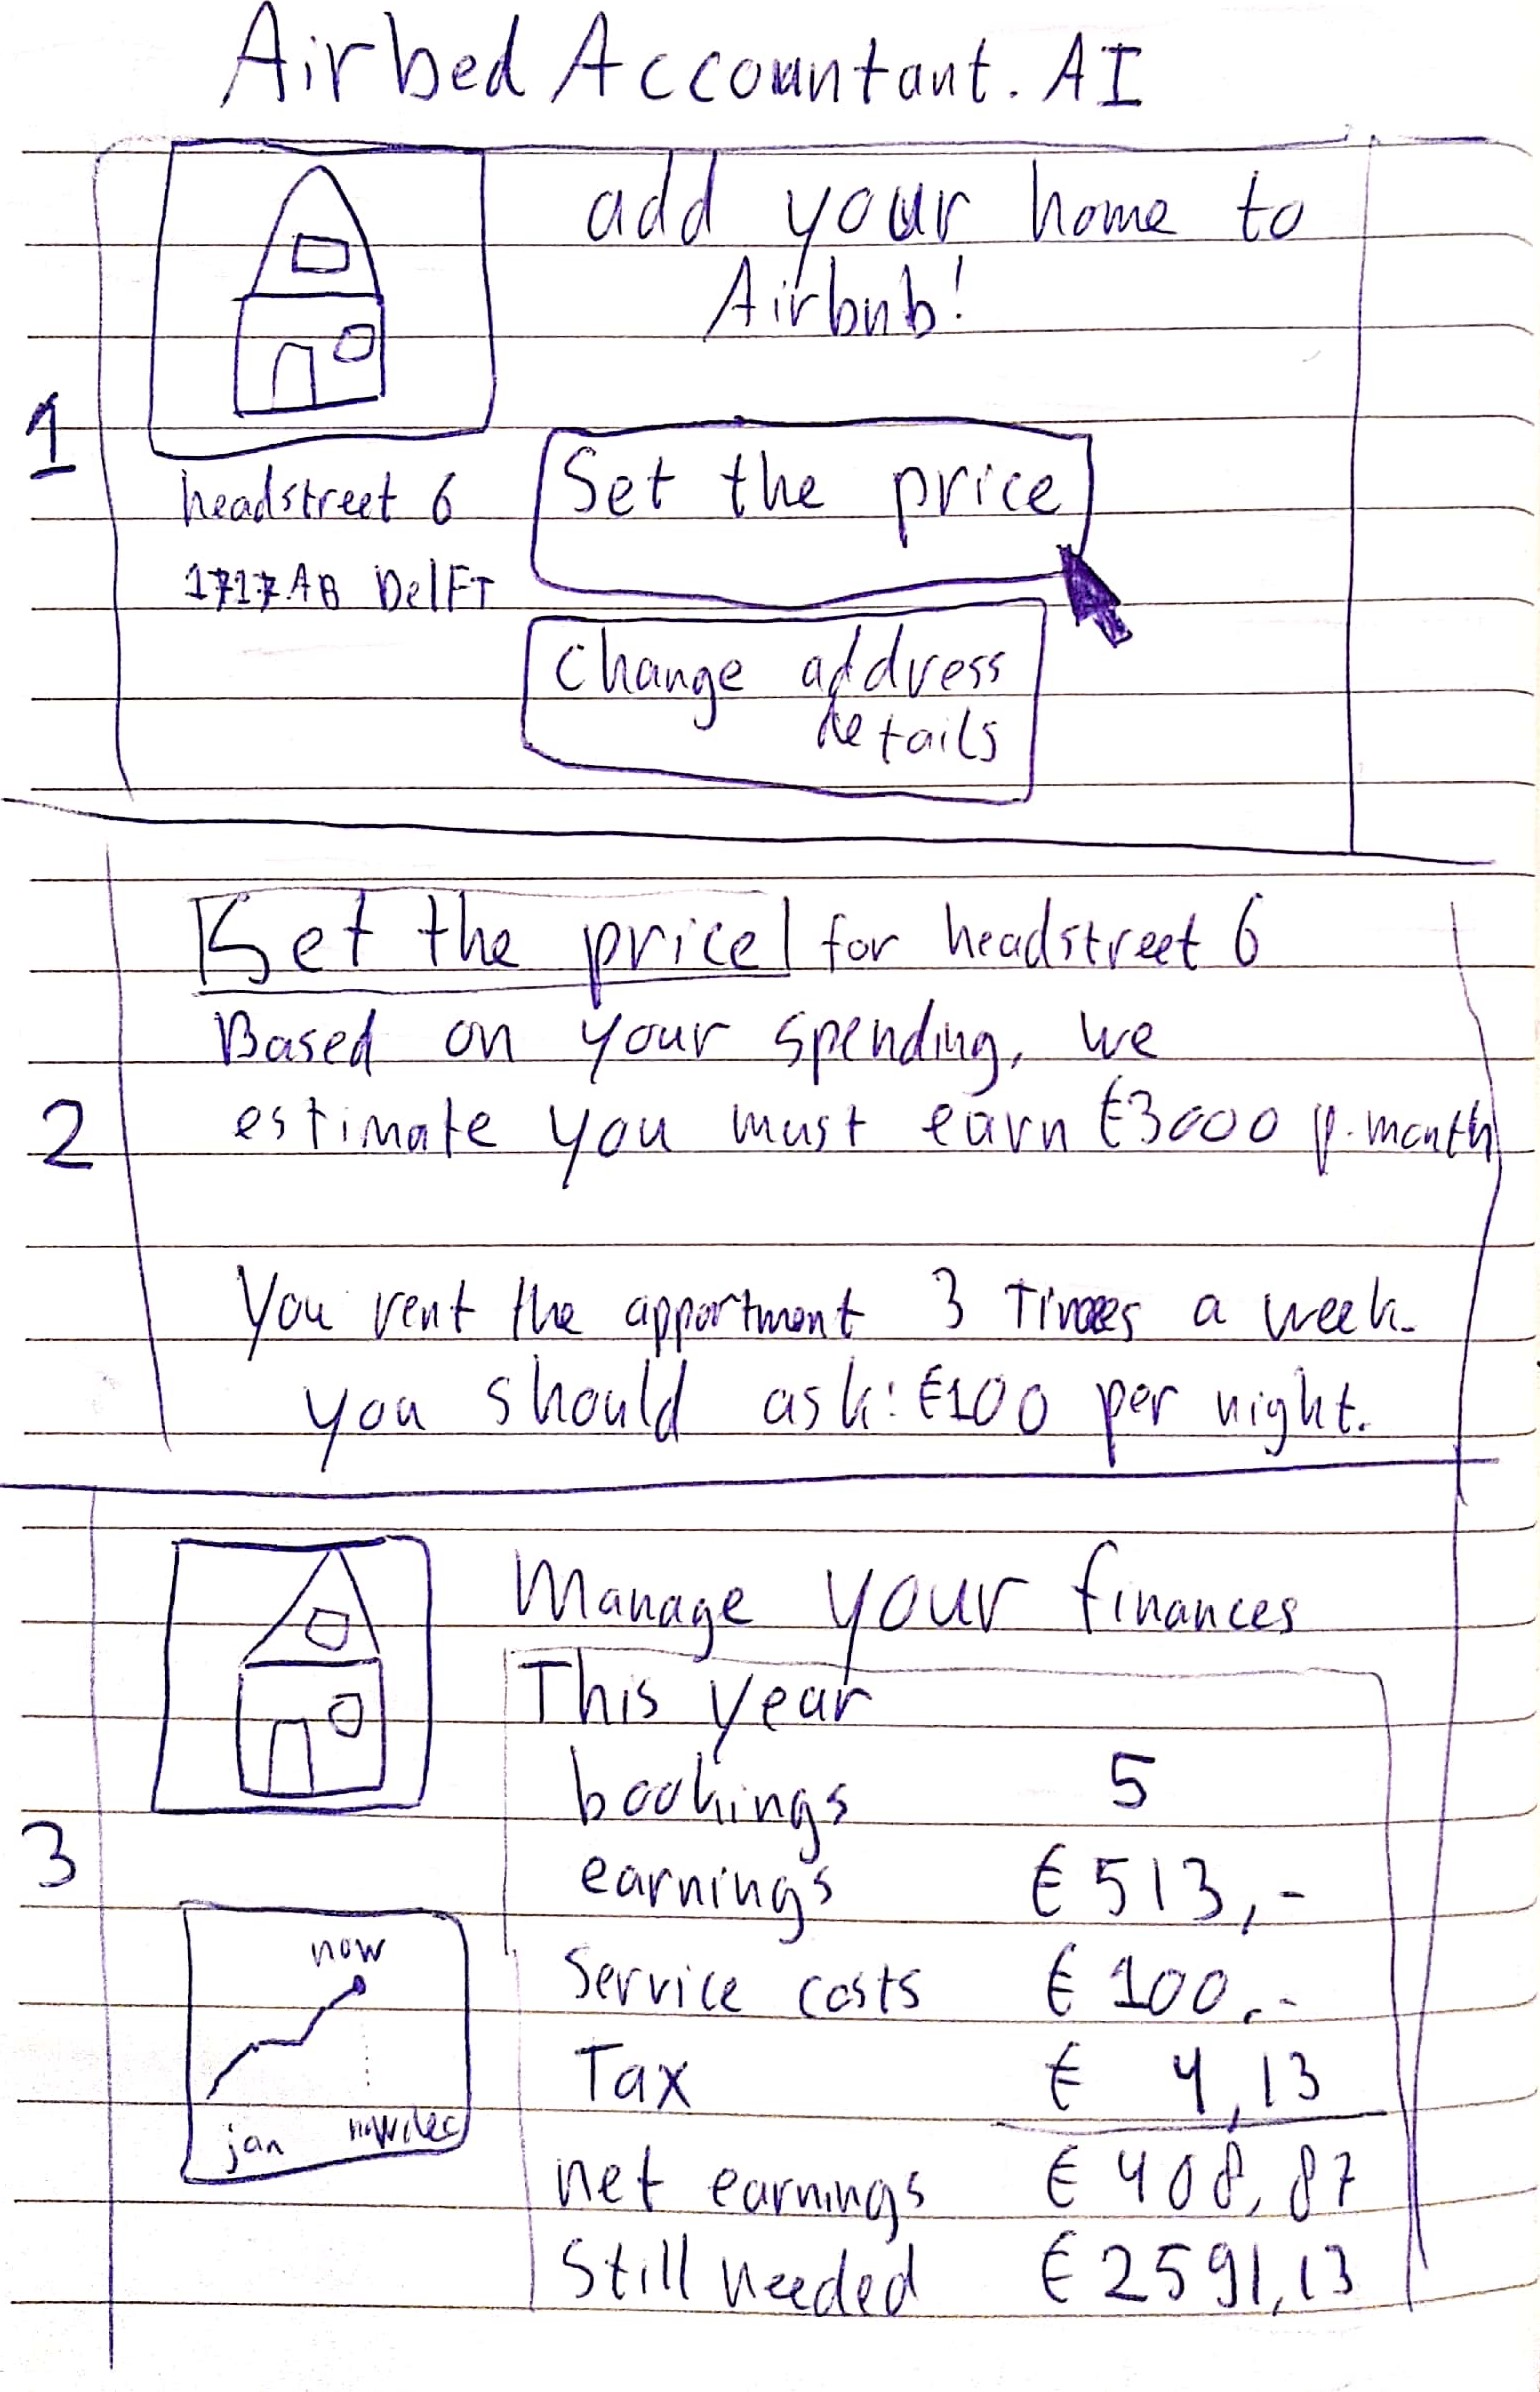 Airbed Accountant.AI
add your home to
Airbnb!
1
headstreet 6
1717AB DelFT
Set the price
change address
details
Set the price for headstreet 6
Based on your spending, we
estimate you must earn €3000 p. month
2
You rent the appartment 3 Times a week.
you should ask: €100 per night.
Manage your finances
This year
bookings 5
3
earnings € 513,-
now
Service costs € 100,-
Tax € 4,13
jan dec
net earnings € 408,87
Still needed € 2591,13